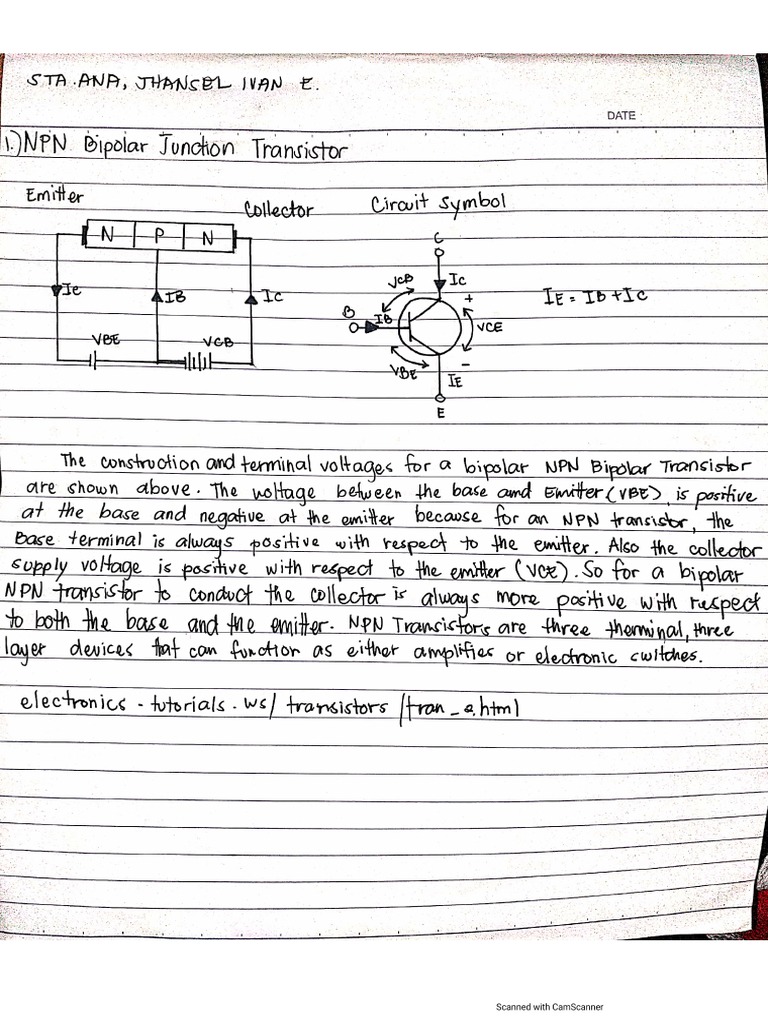 STA. ANA, JHANSEL IVAN E.
DATE
1.) NPN Bipolar Junction Transistor
Emitter
Collector
Circuit Symbol
N P N
C
Ie
IB
IC
VCB
IC
+
IE = IB + IC
B
IB
VCE
VBE
VCB
VBE
IE
−
E
The construction and terminal voltages for a bipolar NPN Bipolar Transistor
are shown above. The voltage between the base and Emitter (VBE), is positive
at the base and negative at the emitter because for an NPN transistor, the
Base terminal is always positive with respect to the emitter. Also the collector
supply voltage is positive with respect to the emitter (VCE). So for a bipolar
NPN transistor to conduct the collector is always more positive with respect
to both the base and the emitter. NPN Transistors are three therminal, three
layer devices that can function as either amplifies or electronic switches.
electronics-tutorials.ws/transistors/tran_2.html
Scanned with CamScanner